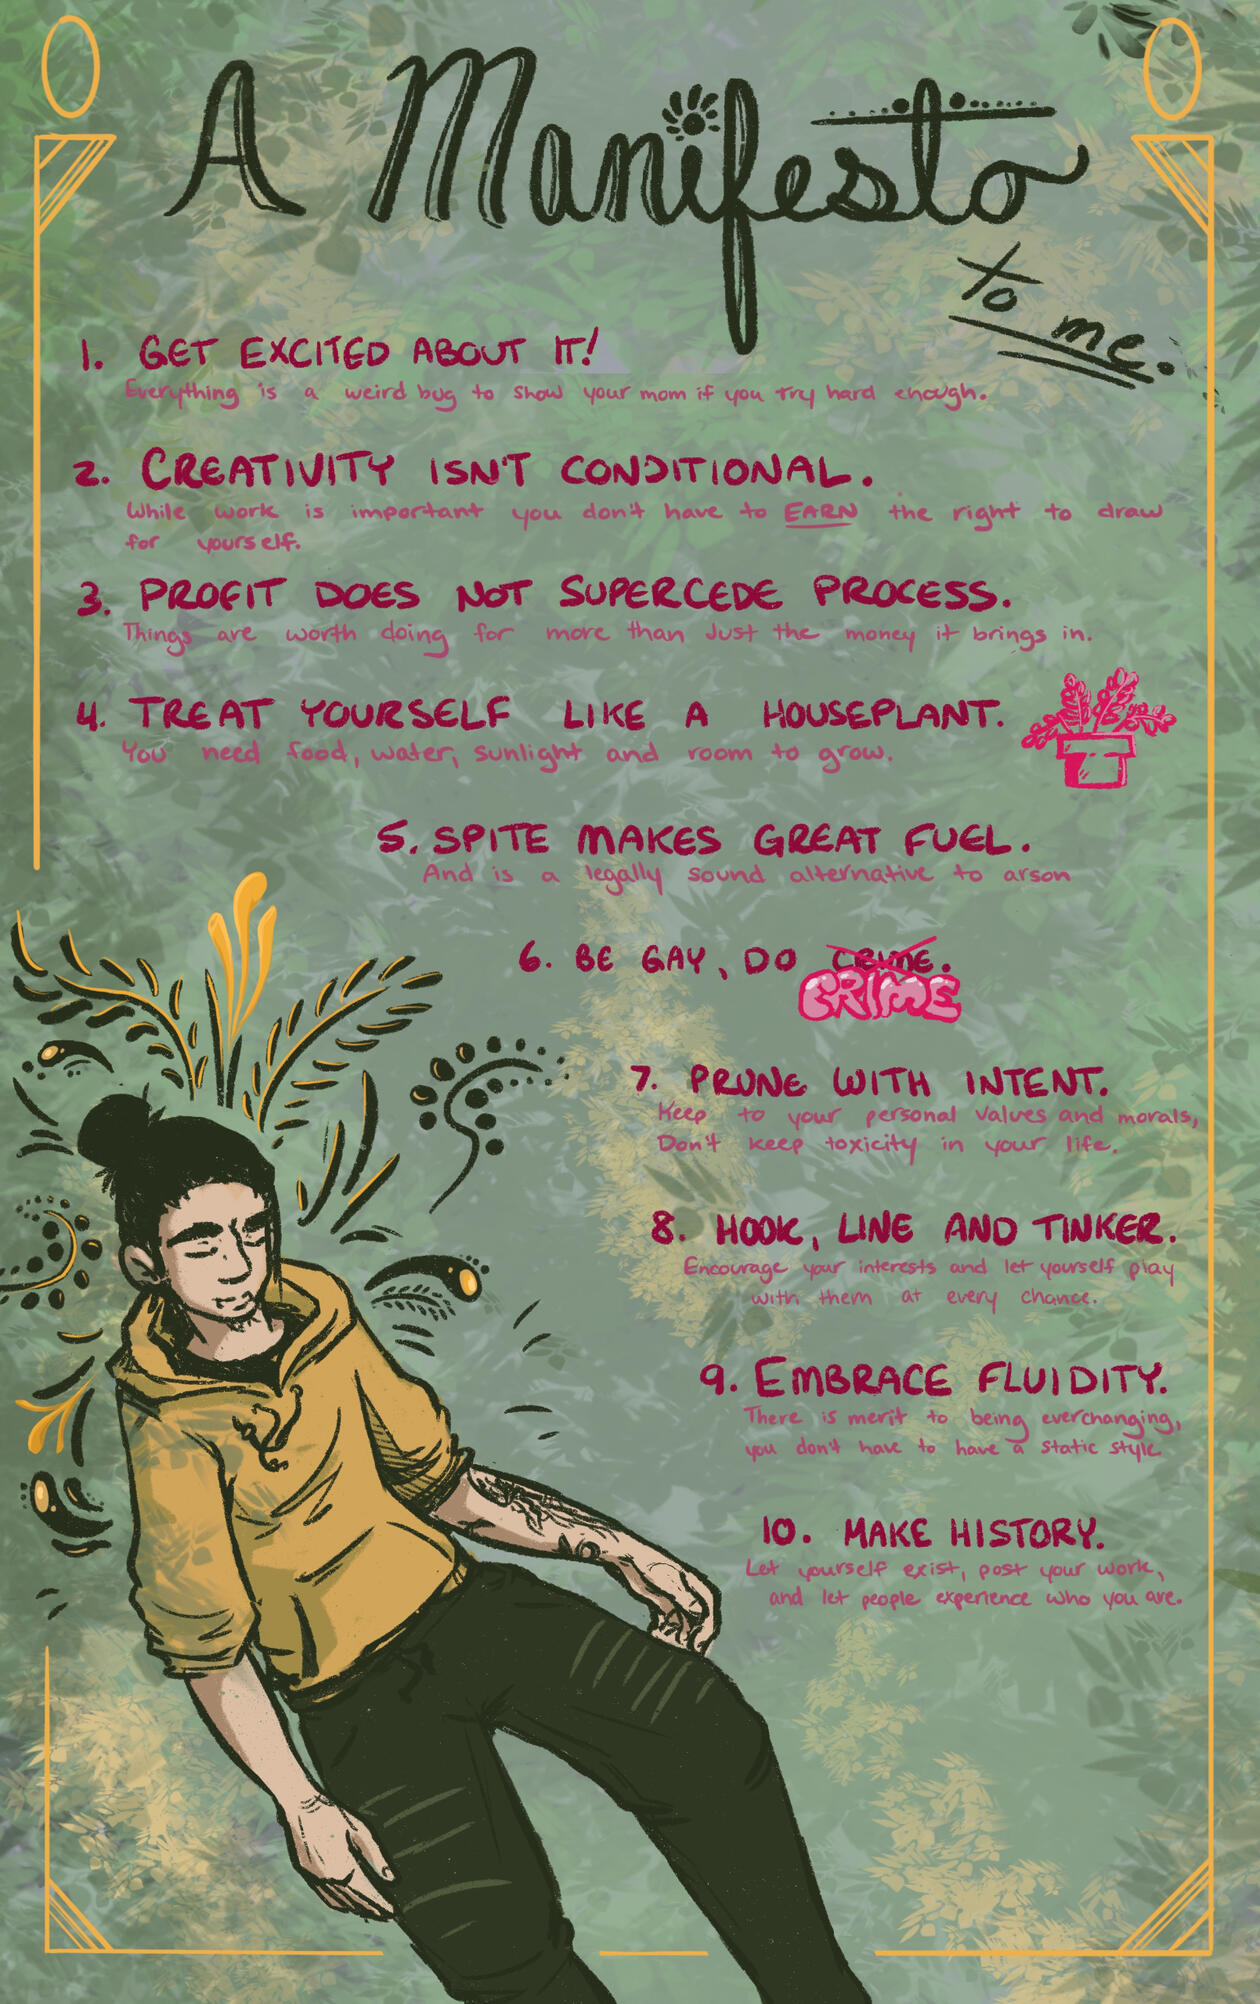 A Manifesto
to me.
1. GET EXCITED ABOUT IT!
Everything is a weird bug to show your mom if you try hard enough.
2. CREATIVITY ISN'T CONDITIONAL.
While work is important you don't have to EARN the right to draw
for yourself.
3. PROFIT DOES NOT SUPERCEDE PROCESS.
Things are worth doing for more than Just the money it brings in.
4. TREAT YOURSELF LIKE A HOUSEPLANT.
You need food, water, sunlight and room to grow.
5. SPITE MAKES GREAT FUEL.
And is a legally sound alternative to arson
6. BE GAY, DO CRIME.
CRIME
7. PRUNE WITH INTENT.
Keep to your personal values and morals,
Don't keep toxicity in your life.
8. HOOK, LINE AND TINKER.
Encourage your interests and let yourself play
with them at every chance.
9. EMBRACE FLUIDITY.
There is merit to being everchanging,
you don't have to have a static style
10. MAKE HISTORY.
Let yourself exist, post your work,
and let people experience who you are.